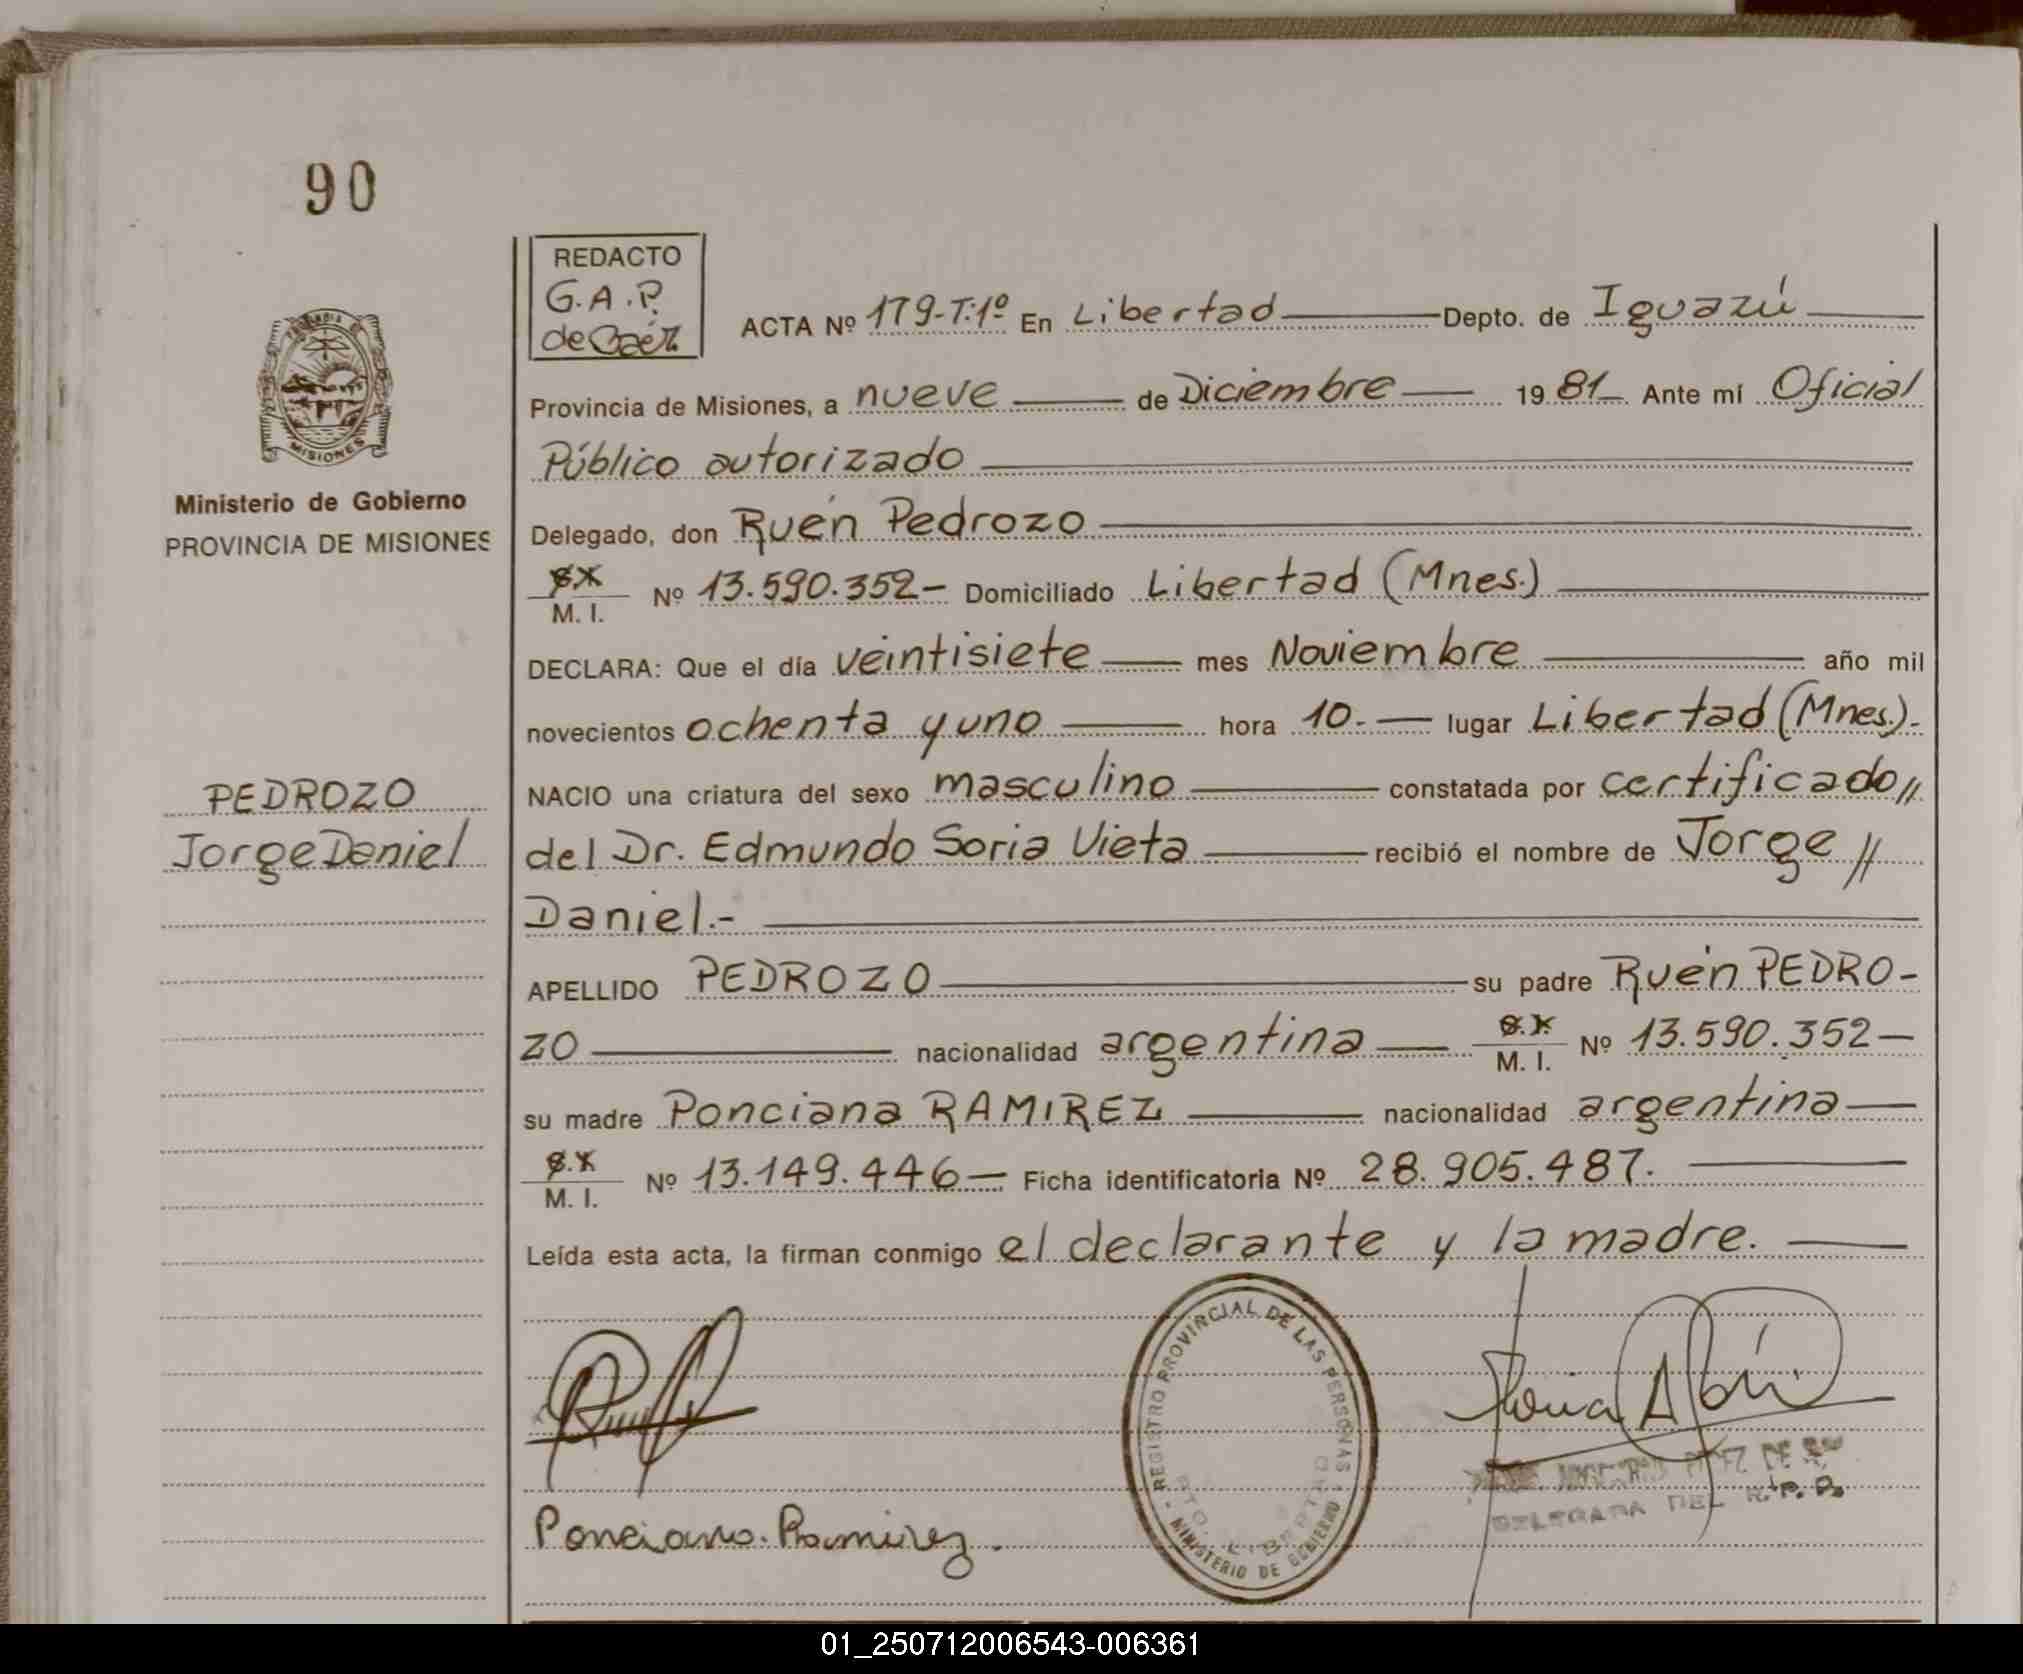 90
REDACTO
G.A.P.
de Baéz
ACTA Nº 179-T:1º En Libertad Depto. de Iguazú
Provincia de Misiones, a nueve de Diciembre 1981 Ante mí Oficial
Público autorizado
Ministerio de Gobierno
PROVINCIA DE MISIONES
MISIONES
Delegado, don Ruén Pedrozo
M. I. Nº 13.590.352- Domiciliado Libertad (Mnes.)
DECLARA: Que el día veintisiete mes Noviembre año mil
novecientos ochenta y uno hora 10.- lugar Libertad (Mnes.)-
PEDROZO
Jorge Daniel
NACIO una criatura del sexo masculino constatada por certificado//
del Dr. Edmundo Soria Vieta recibió el nombre de Jorge //
Daniel.-
APELLIDO PEDROZO su padre Ruén PEDRO-
ZO nacionalidad argentina M. I. Nº 13.590.352-
su madre Ponciana RAMIREZ nacionalidad argentina
M. I. Nº 13.149.446- Ficha identificatoria Nº 28.905.487.
Leída esta acta, la firman conmigo el declarante y la madre.
REGISTRO PROVINCIAL DE LAS PERSONAS
MINISTERIO DE GOBIERNO
LIBERTAD
Ponciana Ramirez.
DELEGADA DEL R.P.P.
01_250712006543-006361